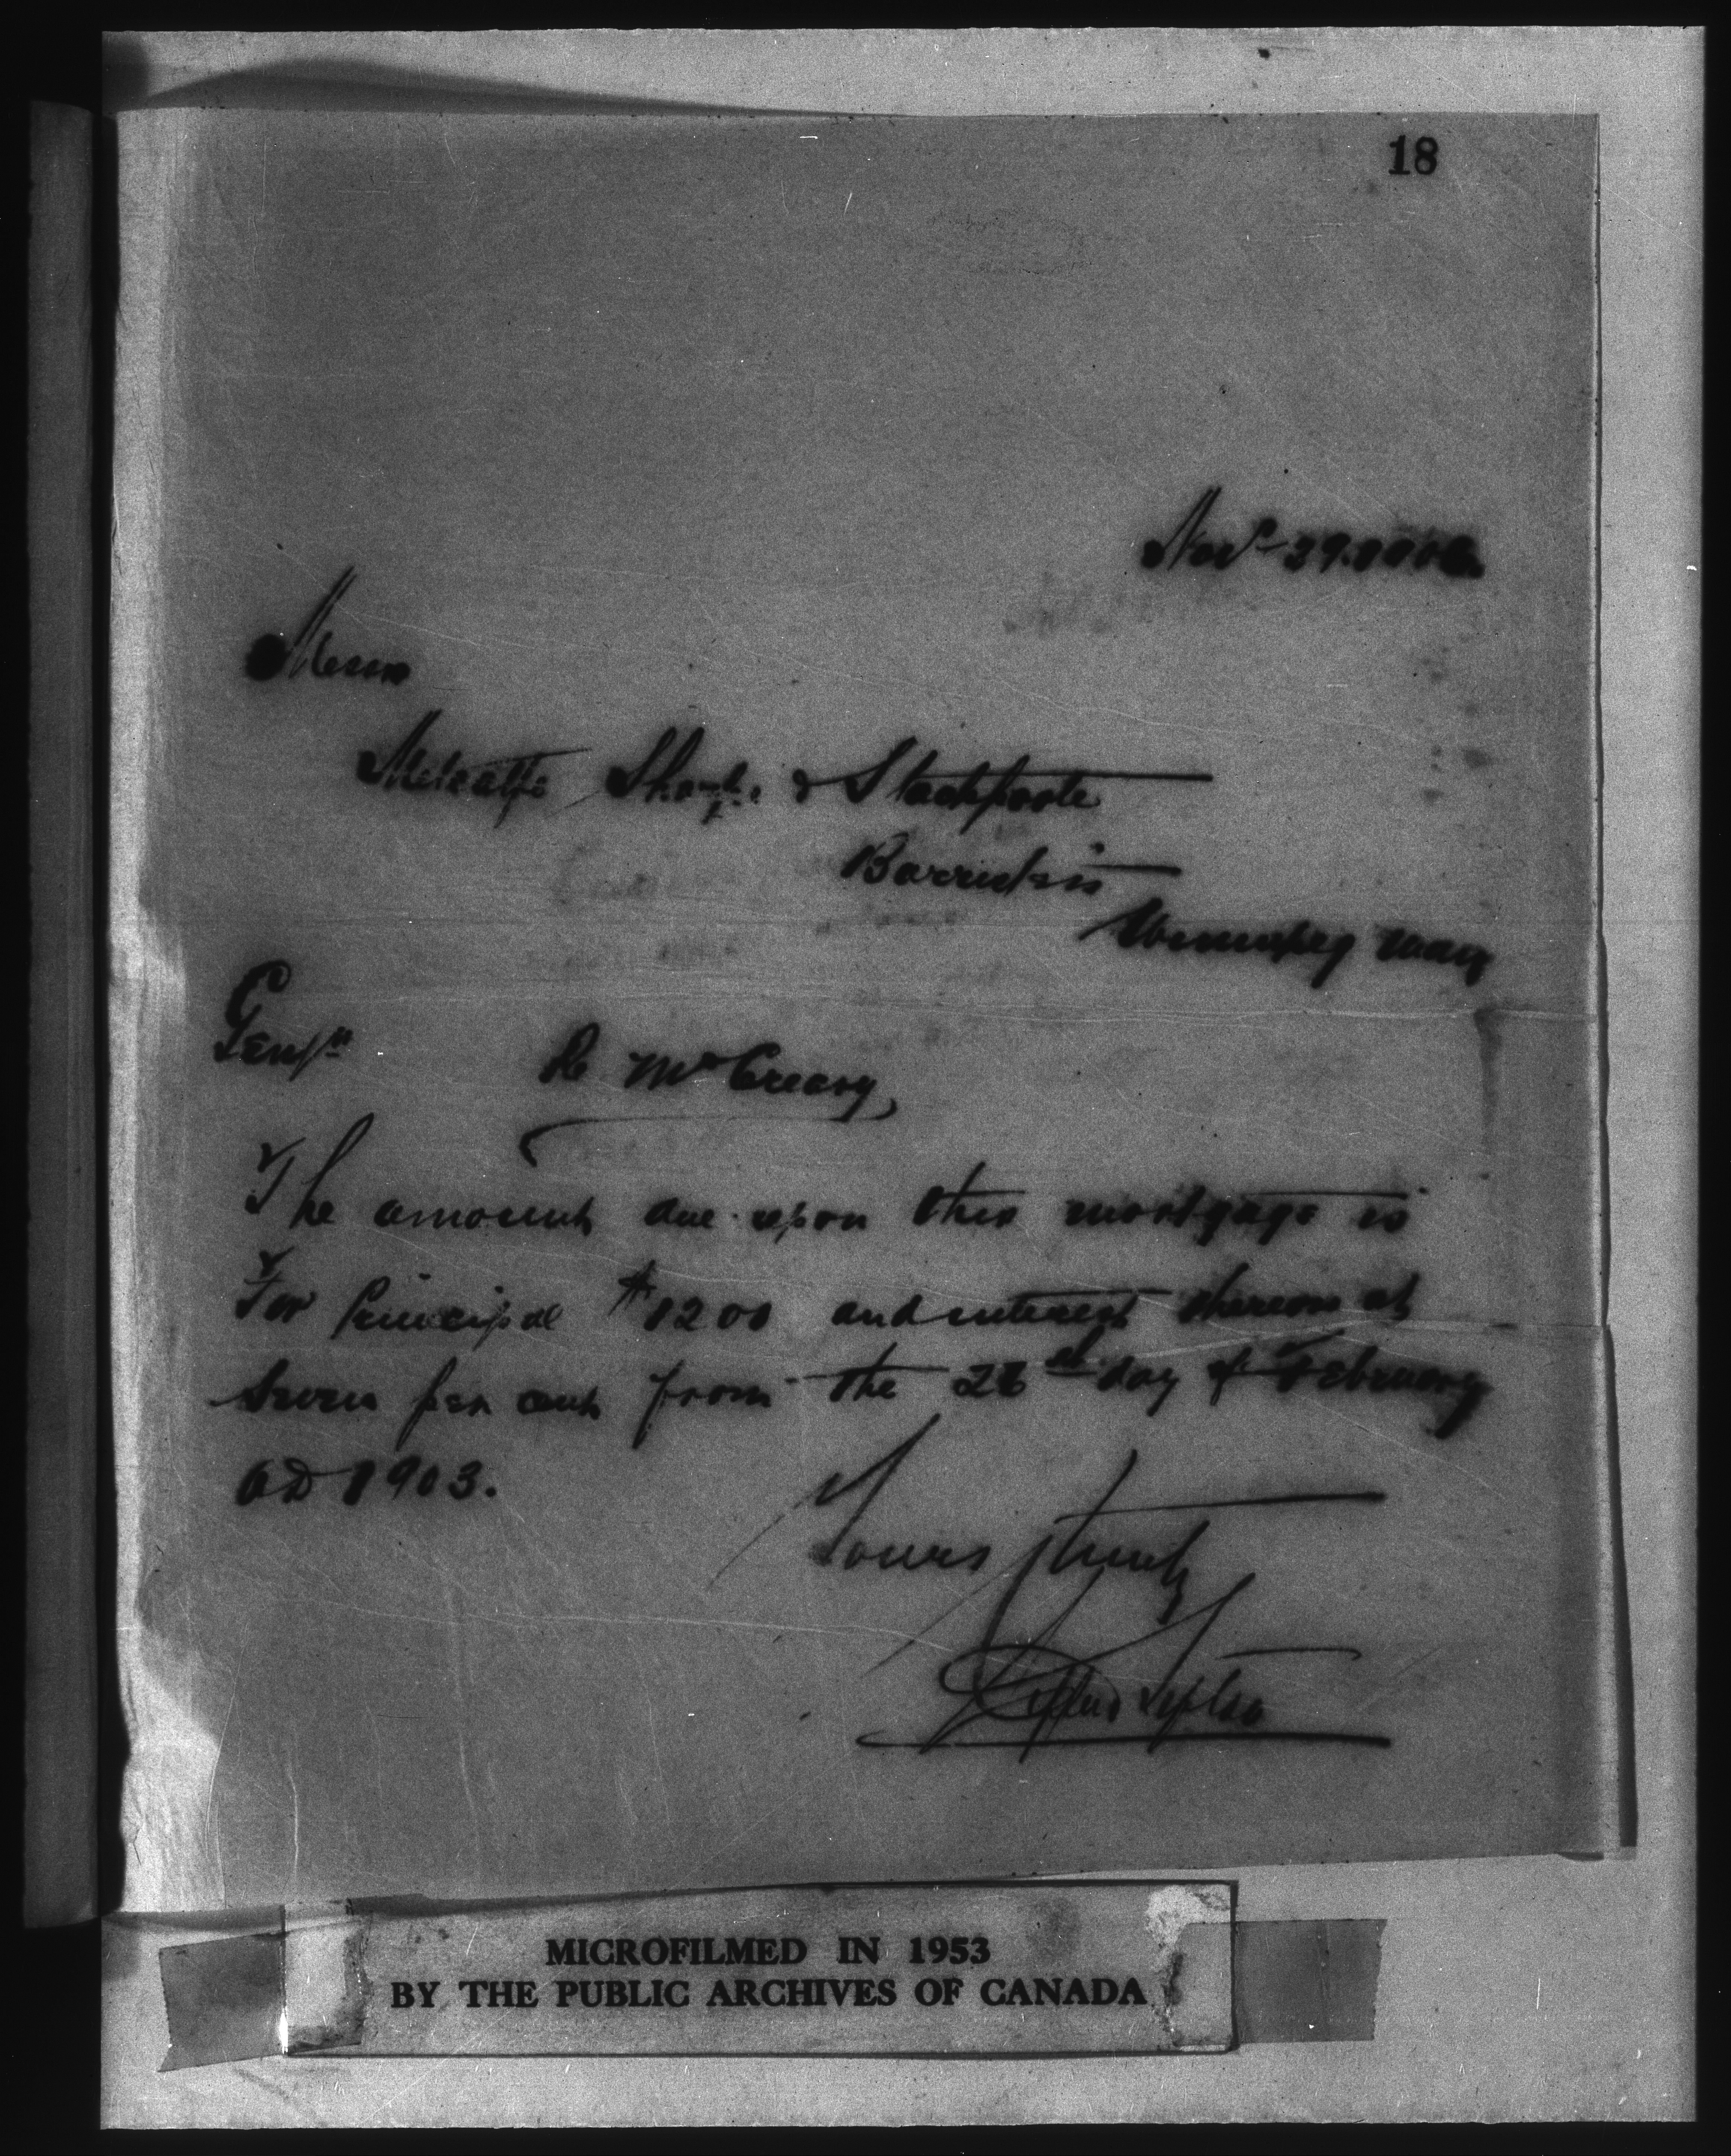 18
Nov 29. 1906.
Messrs
Metcalfe Sharpe & Stackpoole
Barristers
Winnipeg Man
Gentn
Re McCreary,
The amount due upon this mortgage is
For Principal $1200 and interest thereon at
Seven per cent from the 28th day of February
AD 1903.
Yours truly
MICROFILMED IN 1953
BY THE PUBLIC ARCHIVES OF CANADA